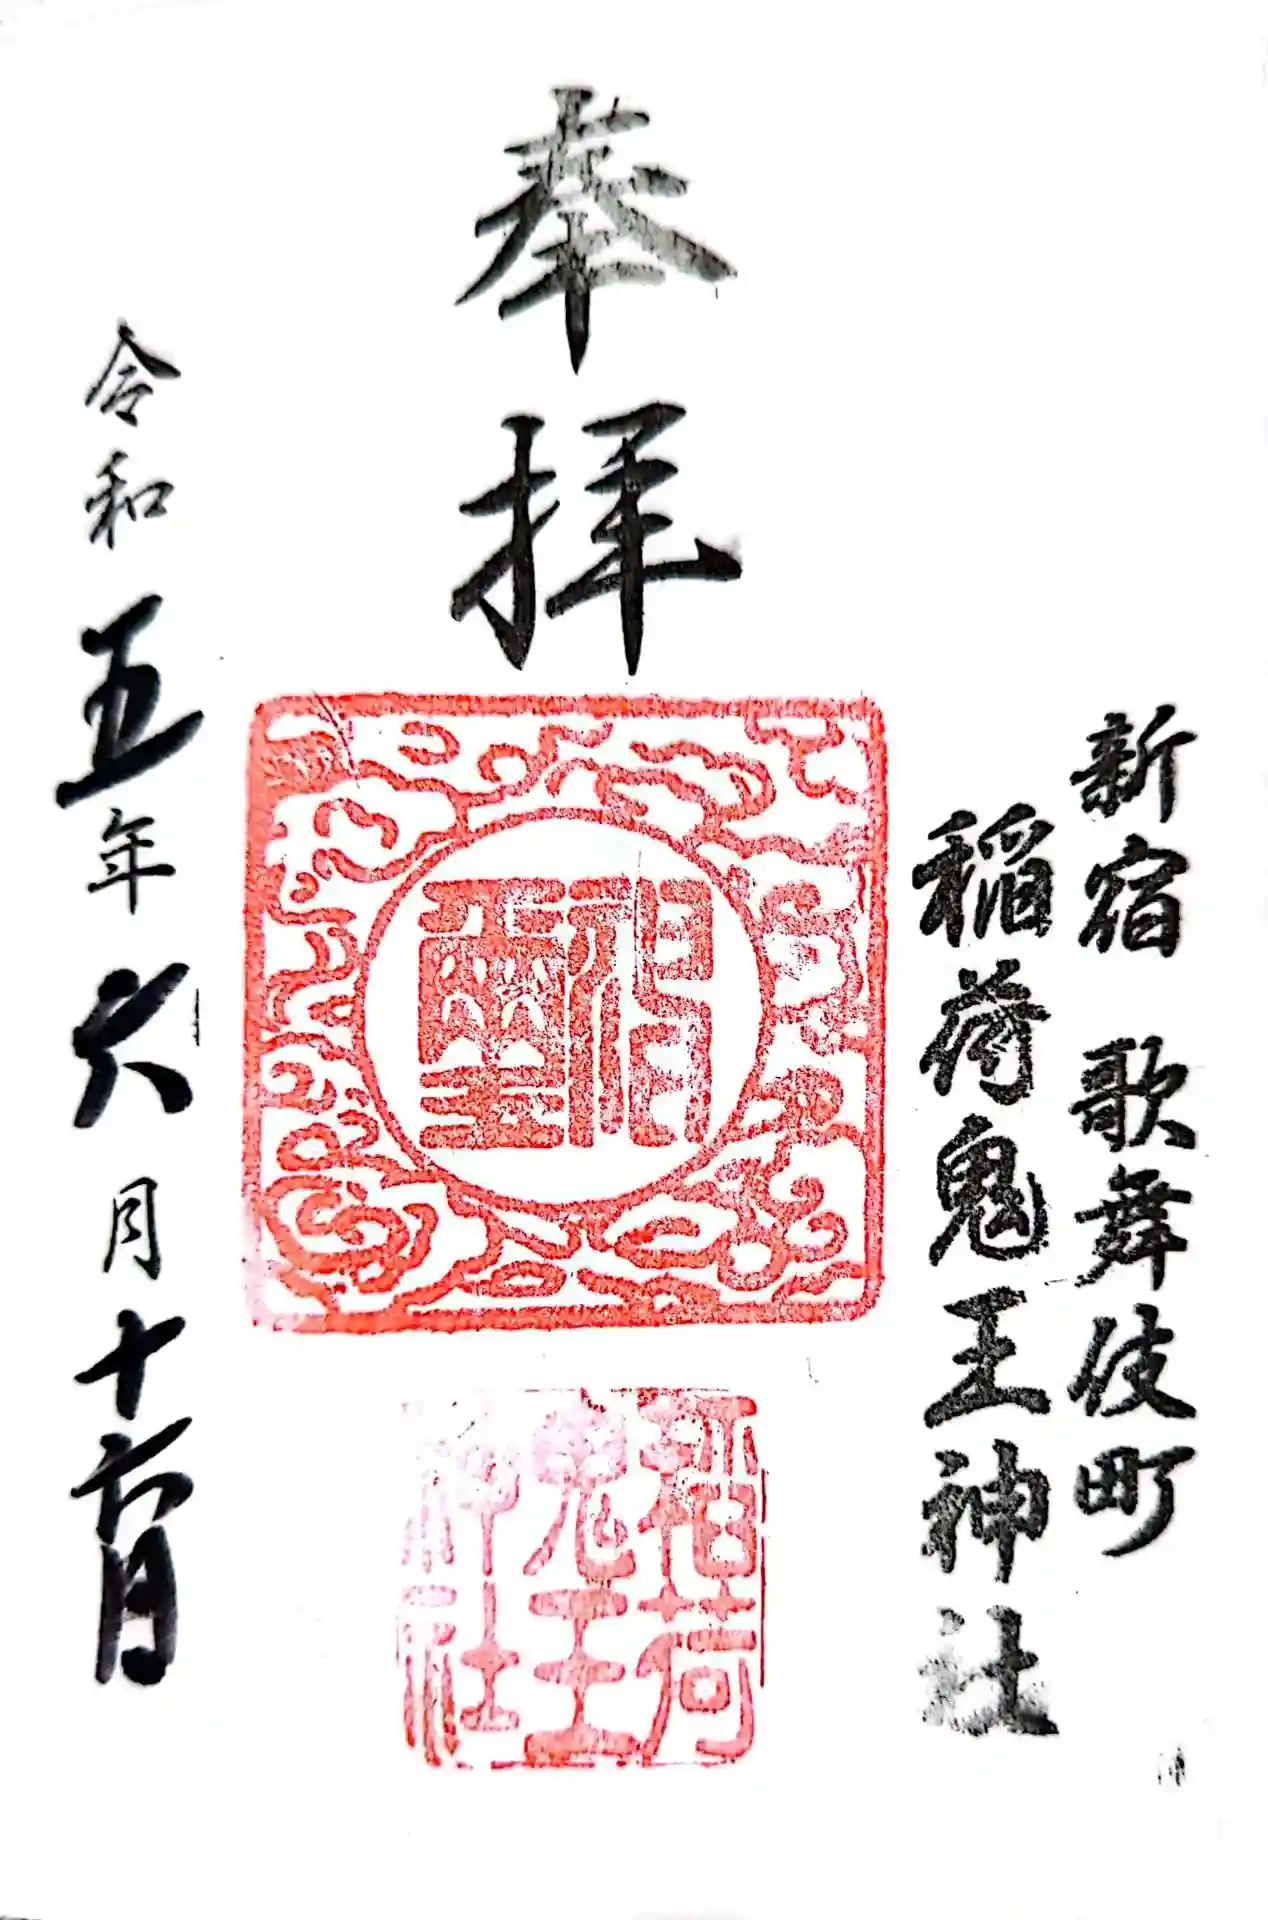 新宿 歌舞伎町
稲荷鬼王神社
奉拝
稲荷
鬼王
神社
令和五年六月十六日